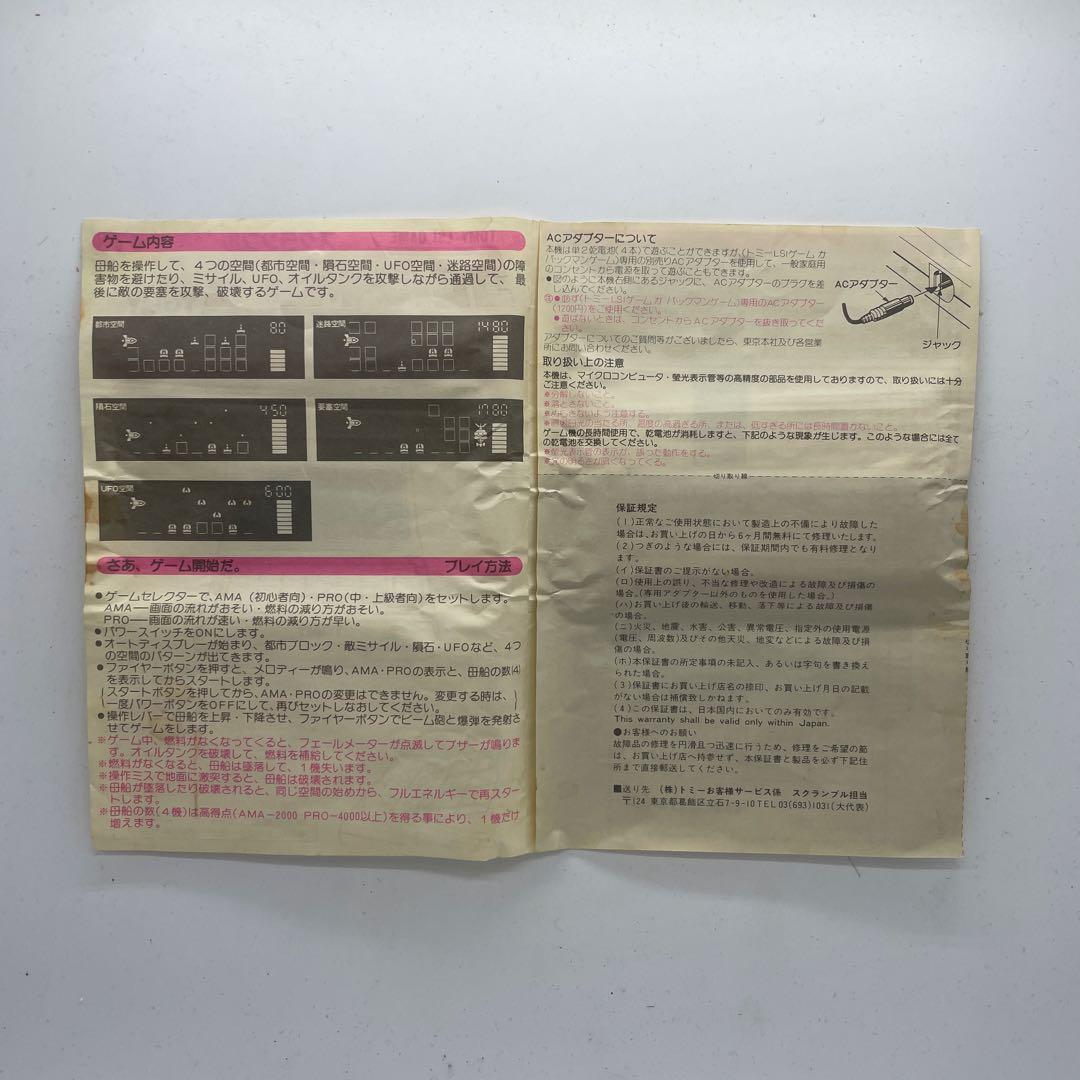 ゲーム内容
母船を操作して、4つの空間(都市空間・隕石空間・UFO空間・迷路空間)の障
害物を避けたり、ミサイル、UFO、オイルタンクを攻撃しながら通過して、最
後に敵の要塞を攻撃、破壊するゲームです。
都市空間 80
迷路空間 1480
隕石空間 450
要塞空間 1780
UFO空間 600
さあ、ゲーム開始だ。 プレイ方法
●ゲームセレクターで、AMA(初心者向)・PRO(中・上級者向)をセットします。
AMA―画面の流れがおそい・燃料の減り方がおそい。
PRO―画面の流れが速い・燃料の減り方が早い。
●パワースイッチをONにします。
●オートディスプレーが始まり、都市ブロック・敵ミサイル・隕石・UFOなど、4つ
の空間のパターンが出てきます。
●ファイヤーボタンを押すと、メロディーが鳴り、AMA・PROの表示と、母船の数(4)
を表示してからスタートします。
(スタートボタンを押してから、AMA・PROの変更はできません。変更する時は、
一度パワーボタンをOFFにして、再びセットしなおしてください。)
●操作レバーで母船を上昇・下降させ、ファイヤーボタンでビーム砲と爆弾を発射さ
せてゲームをします。
※ゲーム中、燃料がなくなってくると、フェールメーターが点滅してブザーが鳴りま
す。オイルタンクを破壊して、燃料を補給してください。
※燃料がなくなると、母船は墜落して、1機失います。
※操作ミスで地面に激突すると、母船は破壊されます。
※母船が墜落したり破壊されると、同じ空間の始めから、フルエネルギーで再スター
トします。
※母船の数(4機)は高得点(AMA-2000 PRO-4000以上)を得る事により、1機だけ
増えます。
ACアダプターについて
本機は単2乾電池(4本)で遊ぶことができますが、(トミーLSIゲーム ガ
パックマンゲーム)専用の別売りACアダプターを使用して、一般家庭用
のコンセントから電源を取って遊ぶこともできます。
●図のように本機右側にあるジャックに、ACアダプターのプラグを差
し込んでください。
注●必ず(トミーLSIゲーム ガ パックマンゲーム)専用のACアダプター
(1200円)をご使用ください。
●遊ばないときは、コンセントからACアダプターを抜き取ってくだ
さい。
アダプターについてのご質問等がございましたら、東京本社及び各営業
所にお問い合わせください。
ACアダプター
ジャック
取り扱い上の注意
本機は、マイクロコンピュータ・螢光表示管等の高精度の部品を使用しておりますので、取り扱いには十分
ご注意ください。
※分解しないこと。
※落とさないこと。
※ぬらさないよう注意する。
※直射日光の当たる所、温度の高過ぎる所、または、低すぎる所には長時間置かないこと。
ゲーム機の長時間使用で、乾電池が消耗しますと、下記のような現象が生じます。このような場合には全て
の乾電池を交換してください。
※螢光表示管の表示が、誤った動作をする。
の明るさが暗くなってくる。
切り取り線
保証規定
(1)正常なご使用状態において製造上の不備により故障した
場合は、お買い上げの日から6ヶ月間無料にて修理いたします。
(2)つぎのような場合には、保証期間内でも有料修理となり
ます。
(イ)保証書のご提示がない場合。
(ロ)使用上の誤り、不当な修理や改造による故障及び損傷の
場合。(専用アダプター以外のものを使用した場合。)
(ハ)お買い上げ後の輸送、移動、落下等による故障及び損傷
の場合。
(ニ)火災、地震、水害、公害、異常電圧、指定外の使用電源
(電圧、周波数)及びその他天災、地変などによる故障及び損
傷の場合。
(ホ)本保証書の所定事項の未記入、あるいは字句を書き換え
られた場合。
(3)保証書にお買い上げ店名の捺印、お買い上げ月日の記載
がない場合は補償致しかねます。
(4)この保証書は、日本国内においてのみ有効です。
This warranty shall be valid only within Japan.
●お客様へのお願い
故障品の修理を円滑且つ迅速に行うため、修理をご希望の節
は、お買い上げ店へ持参せず、本保証書と製品を必ず下記住
所まで直接郵送してください。
■送り先 (株)トミーお客様サービス係 スクランブル担当
〒124 東京都葛飾区立石7-9-10 TEL 03(693)1031(大代表)